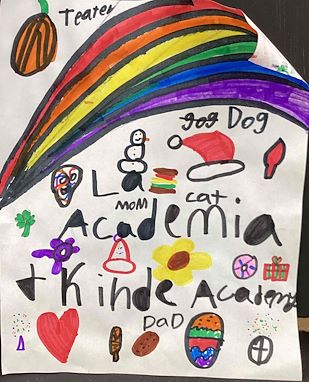 Teater
gog Dog
La
MOM cat
Academia
+ Kinde Academy
DaD